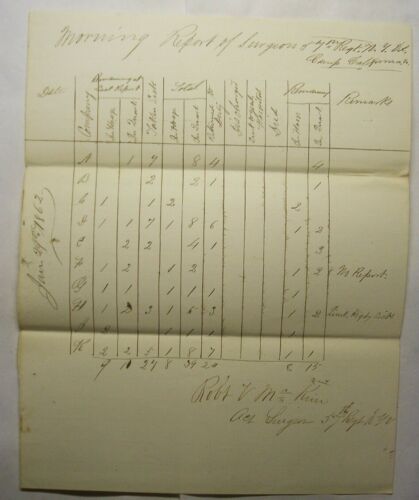 Morning Report of Surgeon 57th Regt. N.Y. Vol.
Camp California Va
Date Company Remaining at Last Report Total Remaining Remarks
In Hosp In Quart Taken Sick In Hosp In Quart Returned to Duty Discharged Sent to Genl Hospital Died In Hosp In Quart
Jan 29th 1862
A 1 7 8 4 4
B 2 2 1 1
C 1 1 2 2
D 1 1 7 1 8 6 1
E 2 2 4 1 2
1 2 1 2 1 2 No Report
G 1 1 1 1
H 1 2 3 1 6 3 1 2
1 1 1
K 2 2 5 1 8 7 1 1
9 27 8 39 6 15
Robt V
Act Surgeon 57th Regt N.Y.V